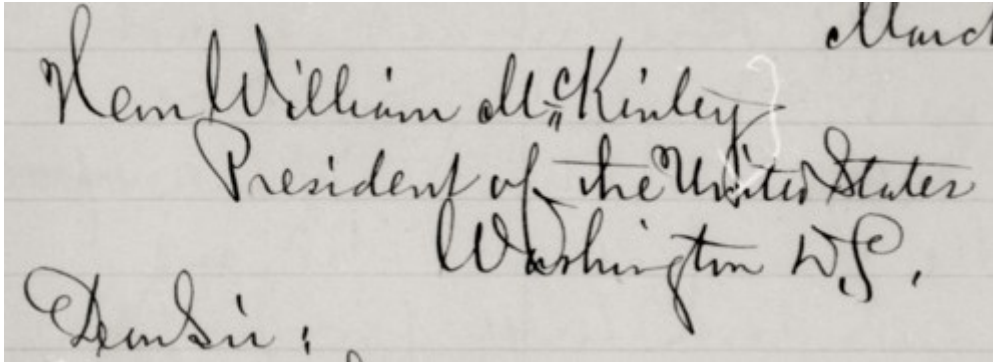 March
Hon William McKinley
President of the United States
Washington D.C.
Dear Sir: